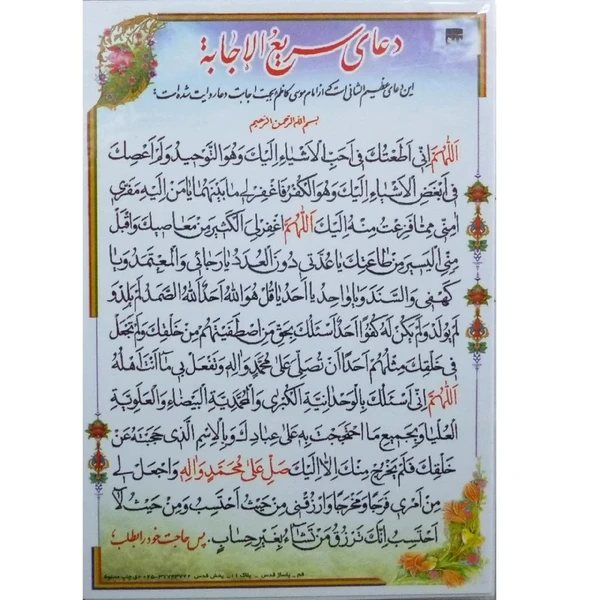 دعای سریع الإجابة
این دعای عظیم الشانی است که از امام موسی کاظم بجهت اجابت دعا روایت شده است:
بسم الله الرحمن الرحیم
اَللّٰهُمَّ اِنّی اَطَعْتُكَ فی اَحَبِّ الْاَشْیاءِ اِلَیْكَ وَهُوَ التَّوْحیدُ وَلَمْ اَعْصِكَ
فی اَبْغَضِ الْاَشْیاءِ اِلَیْكَ وَهُوَ الْكُفْرُ فَاغْفِرْ لی ما بَیْنَهُما یا مَنْ اِلَیْهِ مَفَرّی
اٰمِنّی مِمّا فَزِعْتُ مِنْهُ اِلَیْكَ اَللّٰهُمَّ اغْفِرْ لِیَ الْكَثیرَ مِنْ مَعاصیكَ وَاقْبَلْ
مِنِّی الْیَسیرَ مِنْ طاعَتِكَ یا عُدَّتی دُونَ الْعُدَدِ یا رَجائی وَالْمُعْتَمَدَ وَیا
كَهْفی وَالسَّنَدَ وَیا واحِدُ یا اَحَدُ یا قُلْ هُوَ اللهُ اَحَدٌ اَللهُ الصَّمَدُ لَمْ یَلِدْ وَ
لَمْ یُولَدْ وَلَمْ یَكُنْ لَهُ كُفُوًا اَحَدٌ اَسْئَلُكَ بِحَقِّ مَنِ اصْطَفَیْتَهُمْ مِنْ خَلْقِكَ وَلَمْ تَجْعَلْ
فی خَلْقِكَ مِثْلَهُمْ اَحَدًا اَنْ تُصَلِّیَ عَلیٰ مُحَمَّدٍ وَاٰلِهِ وَتَفْعَلَ بی ما اَنْتَ اَهْلُهُ
اَللّٰهُمَّ اِنّی اَسْئَلُكَ بِالْوَحْدانِیَّةِ الْكُبْریٰ وَالْمُحَمَّدِیَّةِ الْبَیْضاءِ وَالْعَلَوِیَّةِ
الْعُلْیا وَبِجَمیعِ مَا احْتَجَجْتَ بِهِ عَلیٰ عِبادِكَ وَبِالْاِسْمِ الَّذی حَجَبْتَهُ عَنْ
خَلْقِكَ فَلَمْ یَخْرُجْ مِنْكَ اِلّا اِلَیْكَ صَلِّ عَلیٰ مُحَمَّدٍ وَاٰلِهِ وَاجْعَلْ لی
مِنْ اَمْری فَرَجًا وَمَخْرَجًا وَارْزُقْنی مِنْ حَیْثُ اَحْتَسِبُ وَمِنْ حَیْثُ لا
اَحْتَسِبُ اِنَّكَ تَرْزُقُ مَنْ تَشاءُ بِغَیْرِ حِسابٍ. پس حاجت خود را بطلب
قم_ پاساژ قدس _ پلاک ۱۱_ پخش قدس